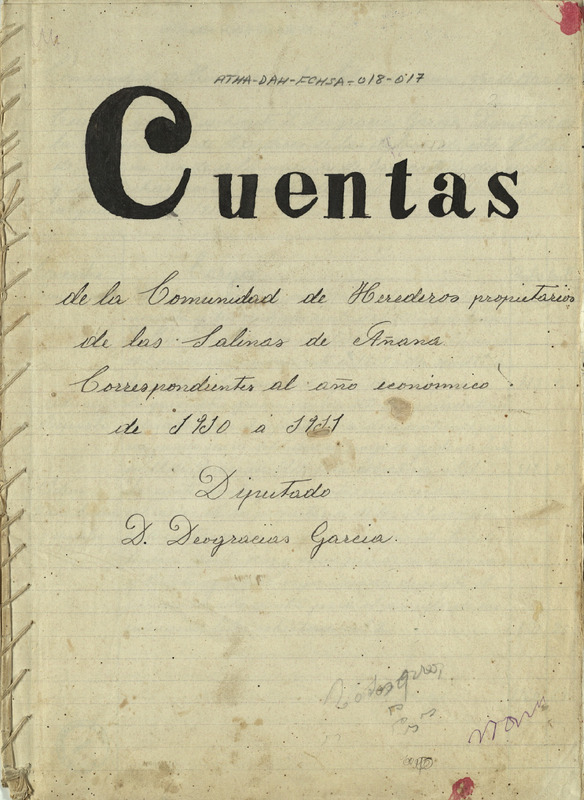 ATHA-DAH-FCHSA-018-017
Cuentas
de la Comunidad de Herederos propietarios
de las Salinas de Añana
Correspondientes al año económico
de 1910 a 1911
Diputado
D. Deogracias Garcia.